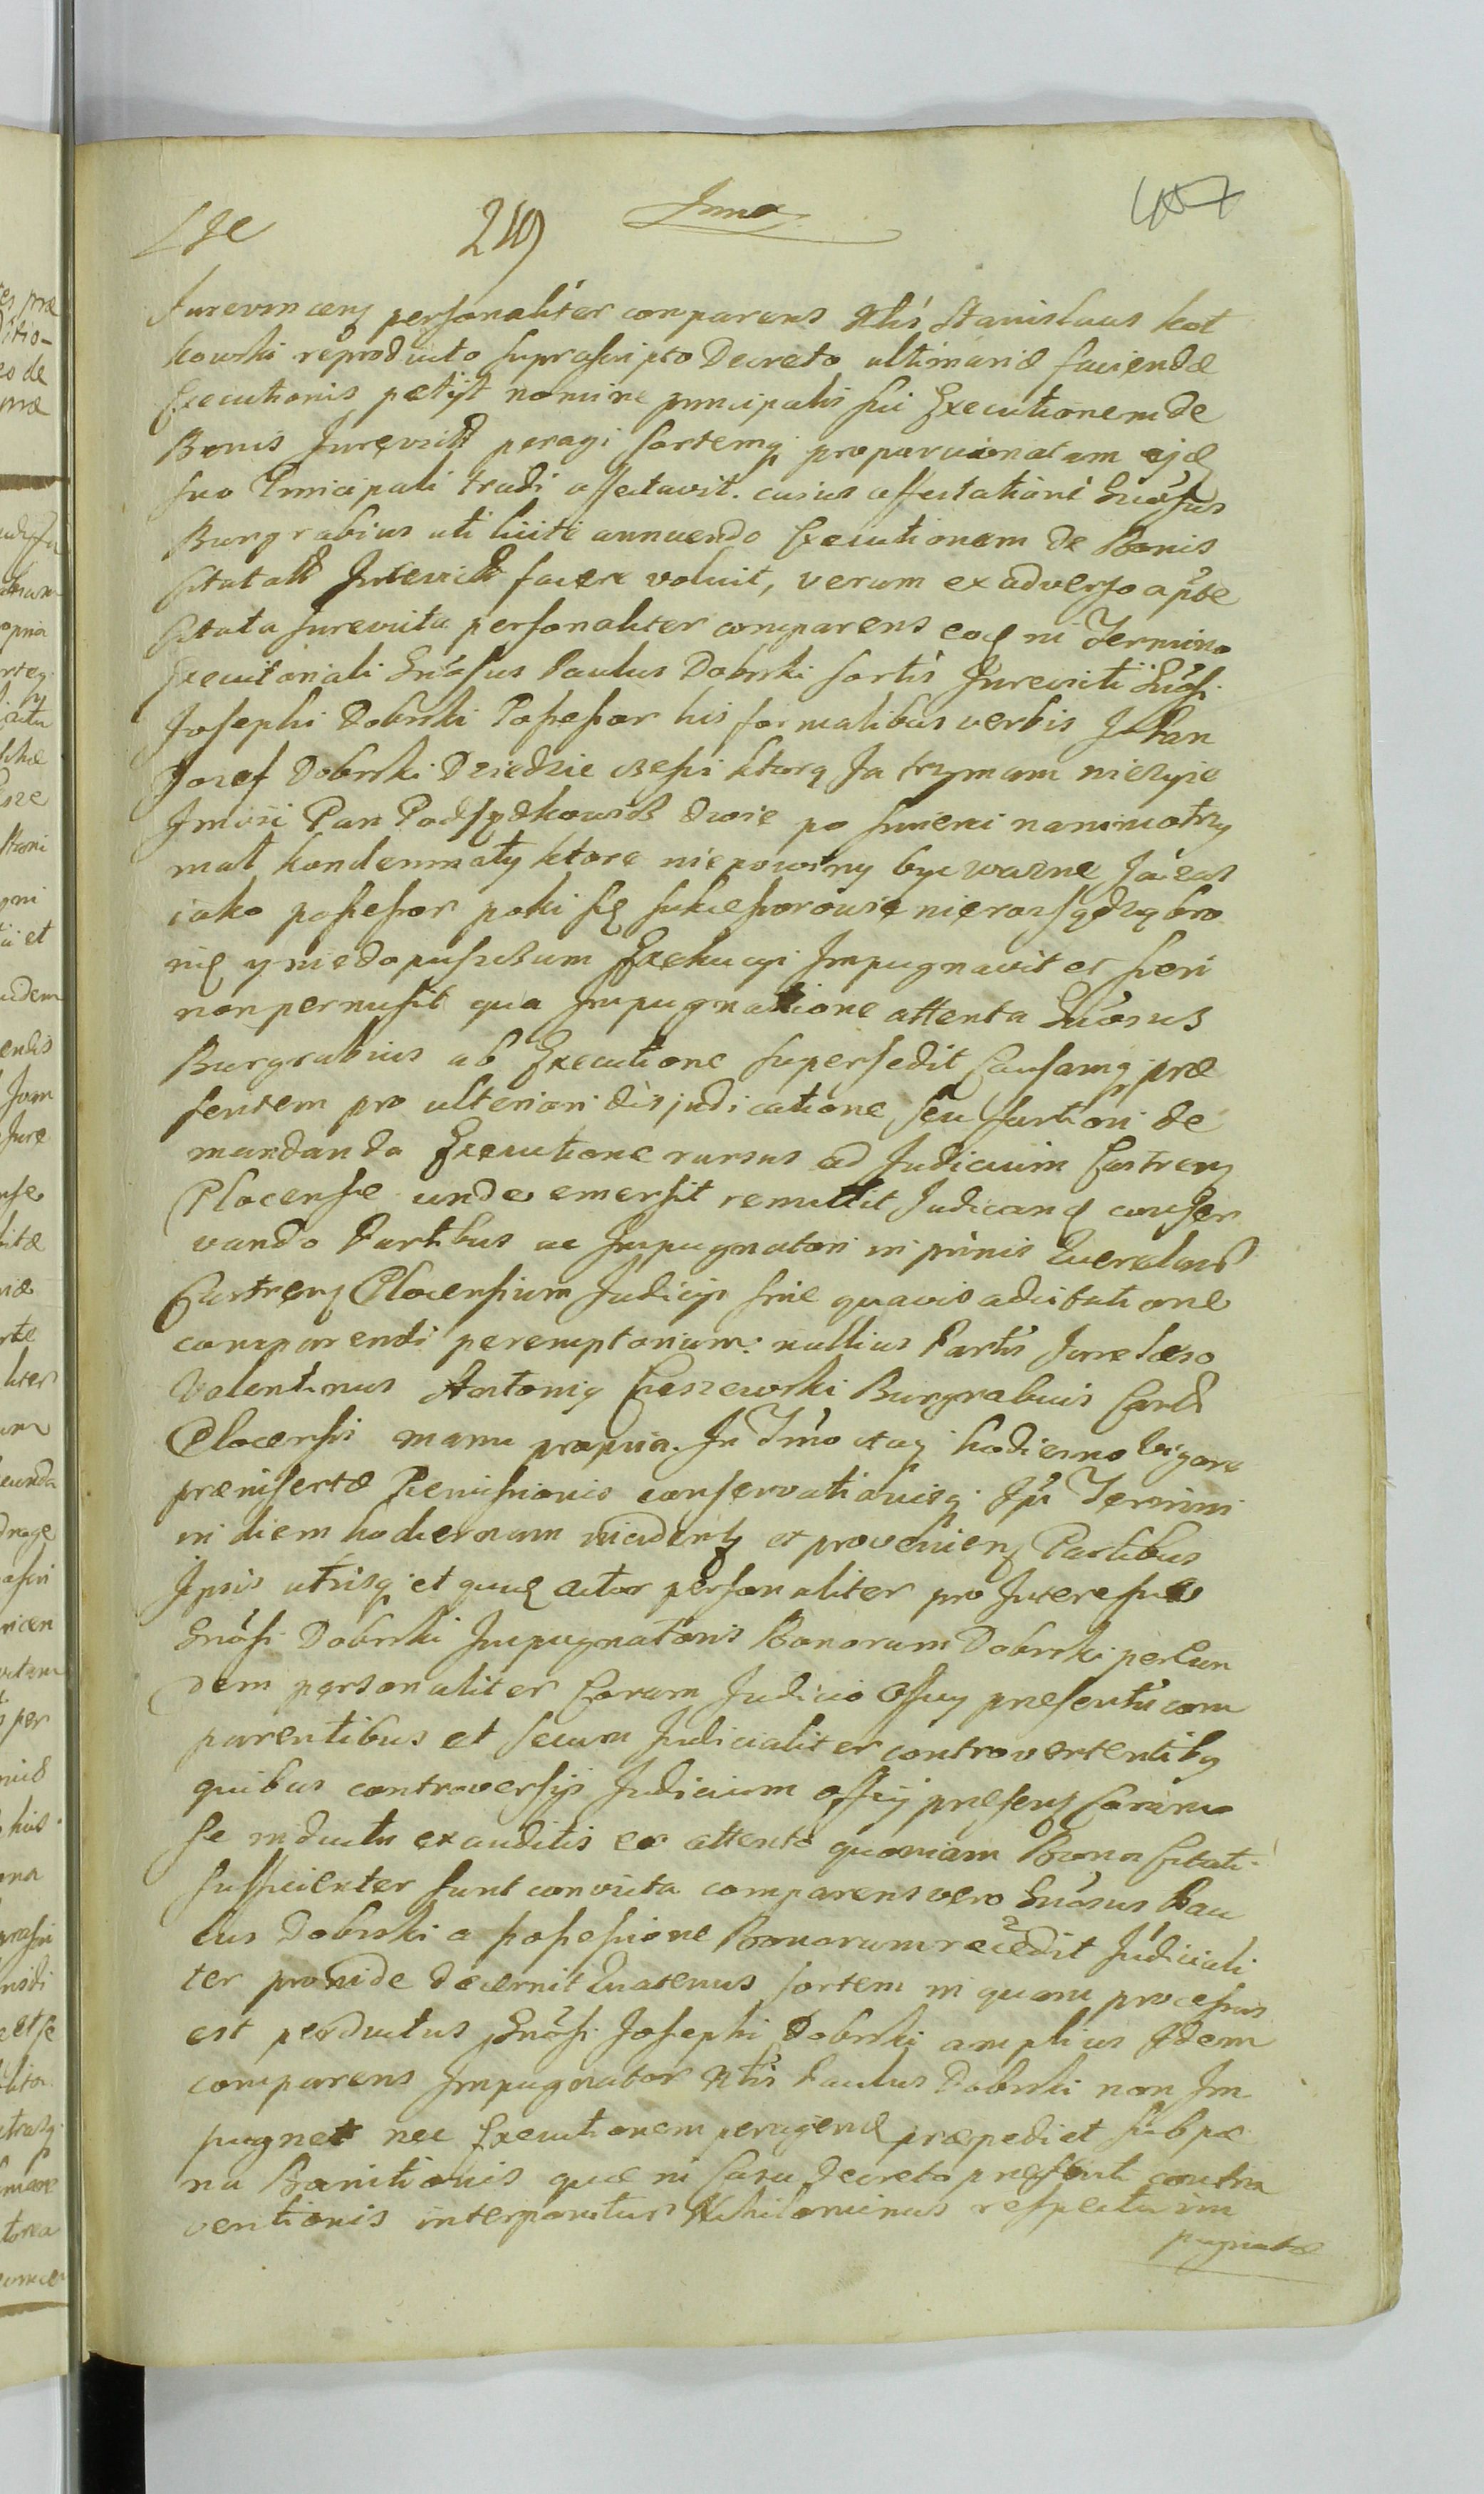 219
457
Jurevincens personaliter comparens Nblis Stanislaus Kot
kowski reproducto suprascripto Decreto ultimariæ faciendæ
Executionis petijt nomine principalis sui Executionem de
Bonis Jurevictis peragi sortemq proporcionatam
suo Principali tradi affectavit. cuius affectationi Gnosus
Burgrabius uti liciti annuendo Executionem de Bonis
Citatatis Jurevictis facere voluit, verum ex adverso a pte
Citata Jurevicta personaliter comparens eoq in Termino
Executionali Gnosus Paulus Dobrski sortis Jurevicti Gnosi
Josephi Dobrski Possessor his formalibus verbis JPan
Jozef Dobrski Dziedzic części ktorą Ja trzymam nieżyie
Jmści Pan Podsędkowicz dwie po śmierci nanimotrzy
mał kondemnaty ktore niepowiny byc wazne Ja zas
iako possessor poki się sukcessorowie nierozsądzą bro
nię y niedopuszczam Exekucyi Impugnavit et fieri
non permisit qua Impugnatione attenta Gnosus
Burgrabius ab Executione supersedit Causamq præ
sentem pro ulteriori disjudicatione seu fortiori de
mandanda Executione rursus ad Judicium Castrens
Plocense unde emersit remittit Judicand conser
vando Partibus ac Impugnatori in primis Querelarum
Castrens Plocensium Judicijs sine quavis adcitatione
comparendi peremptorium. nullius Partis Jure læso
Valentinus Antonig Czeszewski Burgrabius Castr
Plocensis manu propria. In Tmo itaq hodierno Vigore
præinsertæ Remissionis conservationisq Ipsi Termini
in diem hodiernam incidens et proveniens Partibus
Ipsis utrisq et quidem actor personaliter pro Interesse
Gnosi Dobrski Impugnatoris Bonorum Dobrski per Eun
dem personaliter Coram Judicio Officij præsentis com
parentibus et secum Judicialiter controvertentibus
quibus controversijs Judicium Officij præsens Coram
se inductis exauditis eo attento quoniam Bona Citati
sufficienter sunt convicta comparens vero Gnosus Pau
lus Dobrski a possessione Bonorum recedit Judiciali
ter proinde decernit Quatenus sortem in quam processus
est perductus Gnosi Josephi Dobrski amplius Idem
comparens Impugnator Nblis Paulus Dobrski non Im
pugnet nec Executionem peragend præpediet sub pæ
na Banitionis quæ in Casu Decreto præsenti contra
ventionis interponitur Nihilominus respectu im
pugnatæ